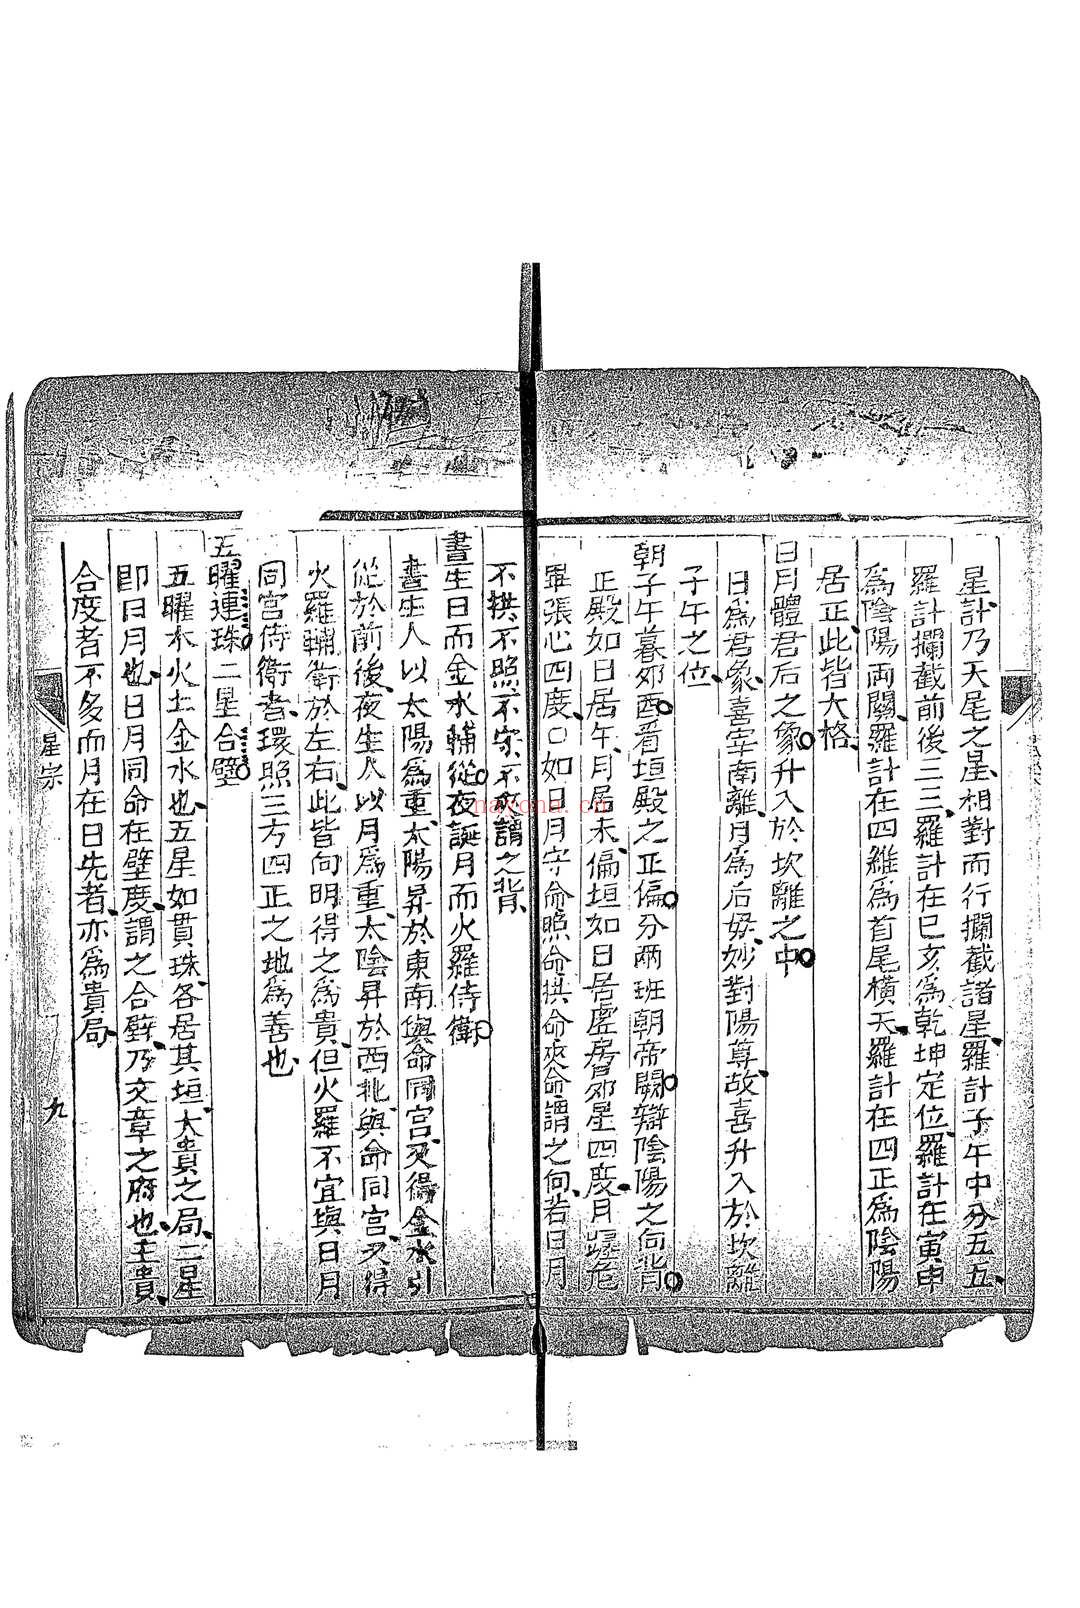 星計乃天尾之星相對而行攔截諸星羅計子午中分五五
羅計攔截前後三三羅計在巳亥為乾坤定位羅計在寅申
為陰陽兩關羅計在四維為首尾橫天羅計在四正為陰陽
居正此皆大格
日月體君后之象升入於坎離之中
日為君象喜宰南離月為后毋妙對陽尊故喜升入於坎離
子午之位
朝子午暮夘酉看垣殿之正偏分兩班朝帝闕辯陰陽之向背
正殿如日居午月居未偏垣如日居虛房夘星四度月躔危
畢張心四度○如日月守命照命拱命夾命謂之向若日月
不拱不照不守不夾謂之背
晝生日而金水輔從夜誕月而火羅侍衛
晝生人以太陽為重太陽昇於東南與命同宮又得金水引
從於前後夜生人以月為重太陰昇於西北與命同宮又得
火羅輔衛於左右此皆向明得之為貴但火羅不宜與日月
同宮侍衛者環照三方四正之地為善也
五曜連珠二星合璧
五曜木火土金水也五星如貫珠各居其垣大貴之局二星
即日月也日月同命在壁度謂之合璧乃文章之府也主貴
合度者不多而月在日先者亦為貴局
星宗
九
nayona.cn